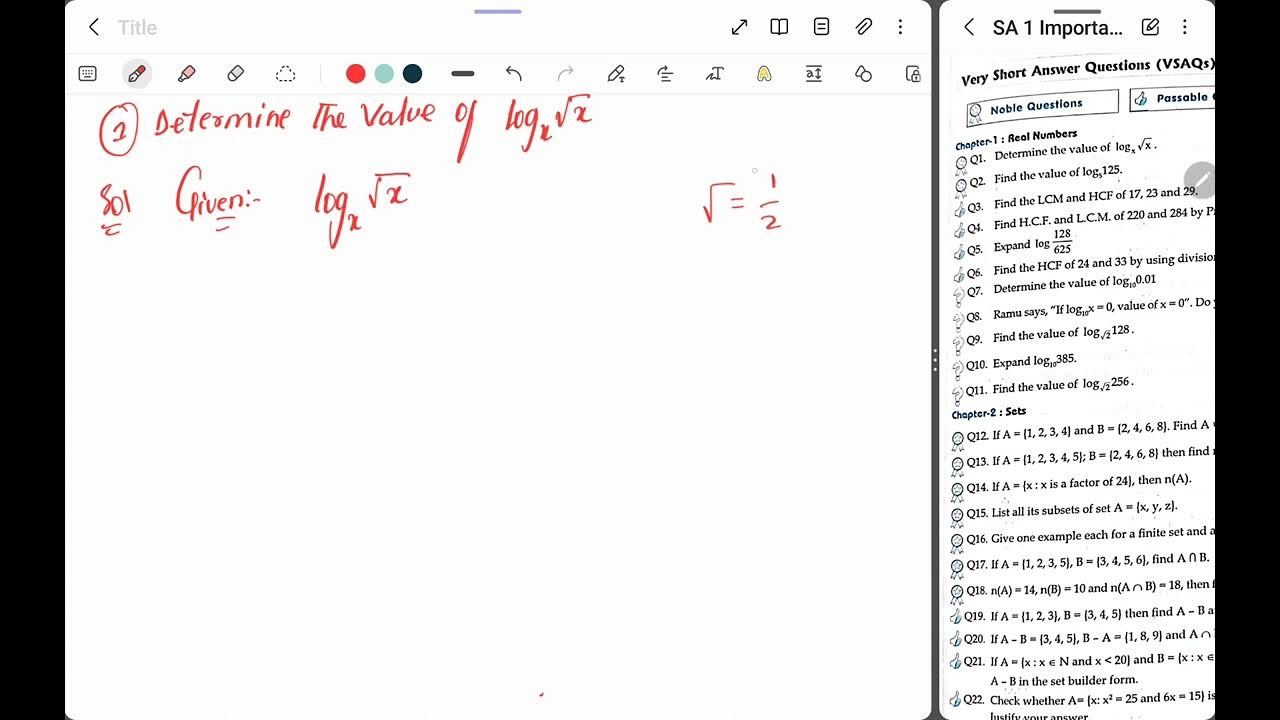 Title
① Determine The Value of logₓ√x
Sol Given:- logₓ√x
√ = 1/2
SA 1 Importa...
Very Short Answer Questions (VSAQs)
Noble Questions
Passable
Chapter-1 : Real Numbers
Q1. Determine the value of logₓ√x.
Q2. Find the value of log₅125.
Q3. Find the LCM and HCF of 17, 23 and 29.
Q4. Find H.C.F. and L.C.M. of 220 and 284 by
Q5. Expand log 128/625
Q6. Find the HCF of 24 and 33 by using
Q7. Determine the value of log₁₀0.01
Q8. Ramu says, "If log₁₀x = 0, value of x = 0". Do
Q9. Find the value of log√2 128.
Q10. Expand log₁₀385.
Q11. Find the value of log√2 256.
Chapter-2 : Sets
Q12. If A = {1, 2, 3, 4} and B = {2, 4, 6, 8}. Find A
Q13. If A = {1, 2, 3, 4, 5}; B = {2, 4, 6, 8} then find
Q14. If A = {x : x is a factor of 24}, then n(A).
Q15. List all its subsets of set A = {x, y, z}.
Q16. Give one example each for a finite set and
Q17. If A = {1, 2, 3, 5}, B = {3, 4, 5, 6}, find A ∩ B.
Q18. n(A) = 14, n(B) = 10 and n(A ∩ B) = 18, then
Q19. If A = {1, 2, 3}, B = {3, 4, 5} then find A – B
Q20. If A – B = {3, 4, 5}, B – A = {1, 8, 9} and A ∩
Q21. If A = {x : x ∈ N and x < 20} and B = {x : x ∈
A – B in the set builder form.
Q22. Check whether A= {x: x² = 25 and 6x = 15} is
Justify your answer